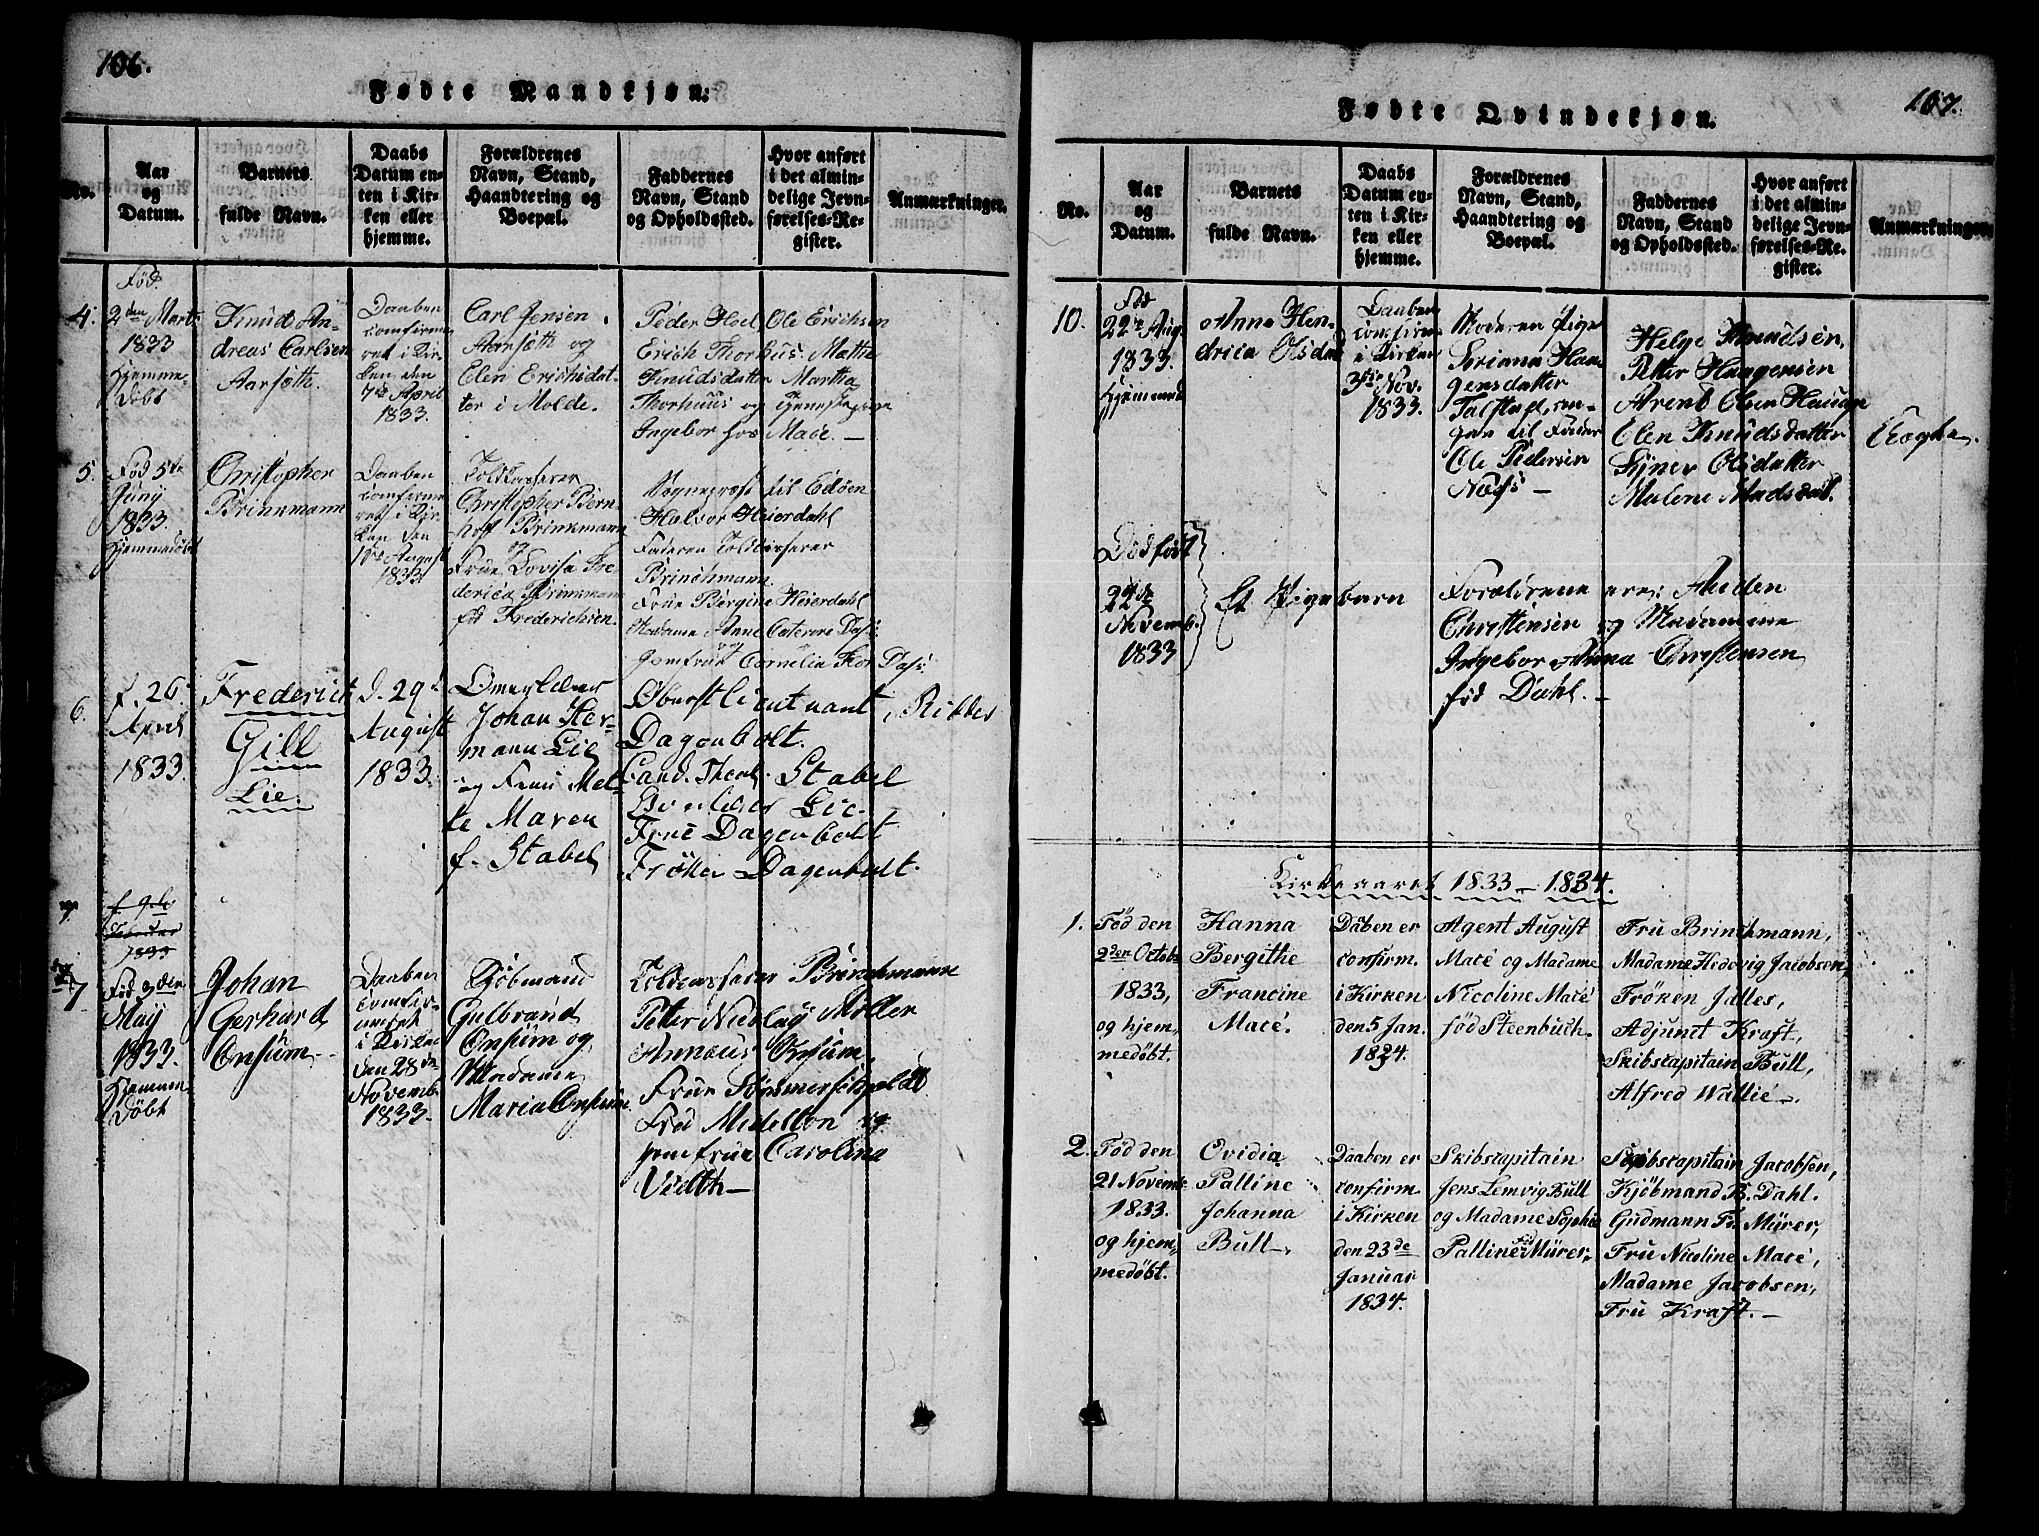 106.
Fødte Mandkjøn.
No.
Aar
og
Datum.
Barnets
fulde Navn.
Daabs
Datum en-
ten i Kir-
ken eller
hjemme.
Forældrenes
Navn, Stand,
Haandtering og
Boepæl.
Faddernes
Navn, Stand
og Opholdssted.
Hvor anført
i det almin-
delige Jevn-
førelses-Re-
gister.
Anmærkninger.
4.
Fød.
2den Marts
1833
Hjemme-
døbt
Knud An-
dreas Carlsen
Aarsæth.
Daaben
comfirme
ret i Kir-
ken den
7de April
1833.
Carl Jensen
Aarsæth og
Elen Erichsdat-
ter i Molde.
Peder Hoel Ole Erichsen
Erich Thorhus Mætte
Knudsdatter Martha
Thorhuus og
Ingebor hos Macé. —
5.
Fød 5te
Juny
1833.
Hjemmedøbt
Christopher
Brinkmann
Daaben
comfirme
ret i Kir-
ken den
August
1833
Toldkasserer
Christopher Bern-
hoff Brinkmann
og
Frue Lovisa Fre-
derica Brinkman
fød Frederichsen.
Sognepræst til Edøen
Halvor Heierdahl
Faderen Toldkasserer
Brinchmann
Frue Bergine Heierdahl
Madame Anne Catrine Dass
og
Jomfrue Cornelia Dass.
6.
f. 26.
April
1833.
Frederich
Gill
Lie.
d. 29.
August
1833.
Johan Her-
mann Lie
og Frue Met-
te Maren
f. Stabel
Oberstlieutnant
Dagenbolt.
Cand. Theol. Stabel
Lie.
Frue Dagenbolt
Frøken Dagenbolt.
Ribbes
7
f. 9de
Februar
1833
7
Fød 3den
Maij
1833.
Hjemme
døbt
Johan
Gerhard
Onsum.
Daaben
comfir-
meret
i Kirken
den 28de
Novemb
1833.
Kjøbmand
Gulbrand
Onsum og
Madame
Maria Onsum
Toldkasserer Brinchmann
Petter Nicolay Møller
Annæus Onsum,
Frue Sommerschield
Frød Midelton og
Jomfrue Carolina
Vedth—
107.
Fødte Qvindekjøn.
No.
Aar
og
Datum.
Barnets
fulde Navn.
Daabs
Datum en-
ten i Kir-
ken eller
hjemme.
Forældrenes
Navn, Stand,
Haandtering og
Boepæl.
Faddernes
Navn, Stand
og Opholdssted.
Hvor anført
i det almin-
delige Jevn-
førelses-Re-
gister.
Anmærkninger.
10.
Fød
22de Aug.
1833.
Hjemmed
Anna Hen-
drica Olsdat
Daaben
comfirme
i Kirken
3die Nov.
1833.
Moderen Pige
Soriana Haa-
gensdatter
gen til Fader
Ole Pedersen
Næss —
Helge Knudsen,
Petter Haagensen
Arend Olsen Hauage
Elen Knudsdatter
Synev Olsdatter
Malene Madsdat.
Dødfødt
22de
Novemb.
1833
Et Pigebarn
Forældrene ere: Anden
Christensen og Madamme
Ingebor Anna Christensen
fød Dahl. —
Kirkeaaret 1833 — 1834.
1.
Fød den
2den Octob.
1833,
og hjem,
medøbt.
Hanna
Bergithe
Francine
Macé.
Dåben er
confirm.
i Kirken
den 5 Jan.
1834.
Agent August
Macé og Madame
Nicoline Macé
fød Steenbuch.
Fru Brinchmann,
Madame Hedevig Jacobsen,
Frøken Jalles,
Adjunct Kraft,
Skibscapitain Bull,
Alfred Wallié —.
2.
Fød den
21 Novemb.
1833.
og hjem,
medøbt.
Ovidia
Palline
Johanna
Bull.
Daaben er
confirm.
i Kirken
den 23de
Januar
1834.
Skibscapitain
Jens Lemvig Bull
og Madame Sophie
Palline fød Mürer.
Skibscapitain Jacobsen,
Kjöbmand B. Dahl.
Gudmann Fr. Mürer,
Fru Nicoline Macé,
Madame Jacobsen,
Fru Kraft. —